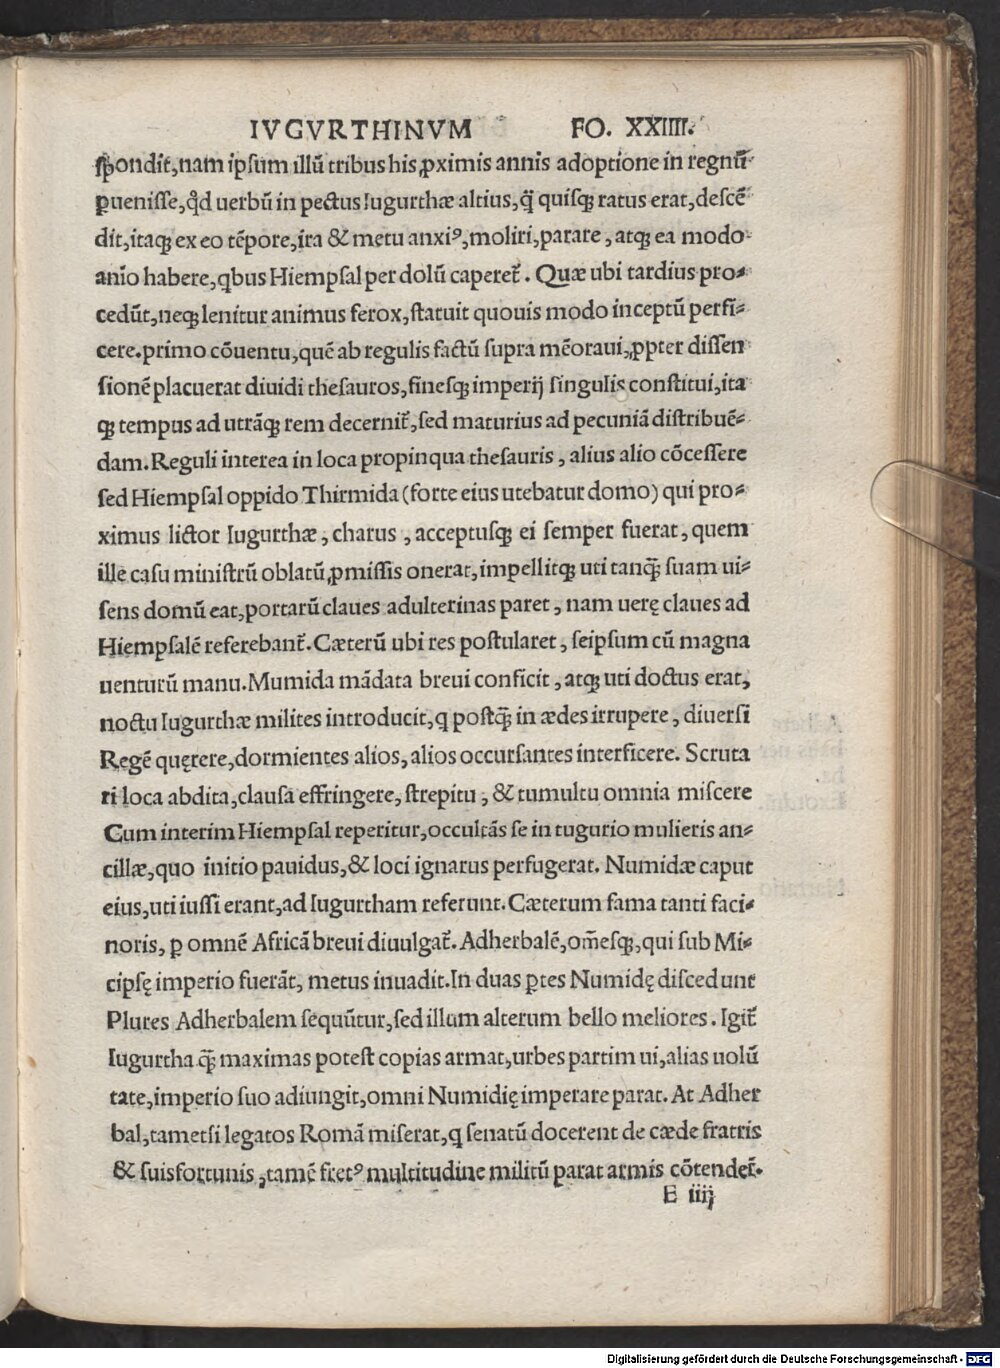 IVGVRTHINVM FO. XXIIII.
ſpondit,nam ipſum illũ tribus his ꝓximis annis adoptione in regnũ
ꝑueniſſe,qd̉ uerbũ in pectus Iugurthæ altius,q̃ quiſqꝫ ratus erat,deſcẽ
dit,itaqꝫ ex eo tẽpore,ira & metu anxiꝰ,moliri,parare, atqꝫ ea modo
anĩo habere,qbus Hiempſal per dolũ caperet̃. Quæ ubi tardius pro⸗
cedũt,neqꝫ lenitur animus ferox,ſtatuit quouis modo inceptũ perfi⸗
cere.primo cõuentu,quẽ ab regulis factũ ſupra mẽoraui,ꝓpter diſſen
ſionẽ placuerat diuidi theſauros,fineſqꝫ imperij ſingulis conſtitui,ita
qꝫ tempus ad utrãqꝫ rem decernit̃,ſed maturius ad pecuniã diſtribuẽ⸗
dam.Reguli interea in loca propinqua theſauris, alius alio cõceſſere
ſed Hiempſal oppido Thirmida (forte eius utebatur domo) qui pro⸗
ximus lictor Iugurthæ, charus, acceptuſqꝫ ei ſemper fuerat, quem
ille caſu miniſtrũ oblatũ ꝓmiſſis onerat,impellitqꝫ uti tanq̃ ſuam ui⸗
ſens domũ eat,portarũ claues adulterinas paret, nam uerę claues ad
Hiempſalẽ referebant̃.Cæterũ ubi res poſtularet, ſeipſum cũ magna
uenturũ manu.Mumida mãdata breui conficit, atqꝫ uti doctus erat,
noctu Iugurthæ milites introducit,q poſtq̃ in ædes irrupere, diuerſi
Regẽ quęrere,dormientes alios, alios occurſantes interficere. Scruta
ri loca abdita,clauſa effringere, ſtrepitu, & tumultu omnia miſcere
Cum interim Hiempſal reperitur,occultãs ſe in tugurio mulieris an⸗
cillæ,quo initio pauidus,& loci ignarus perfugerat. Numidæ caput
eius,uti iuſſi erant,ad Iugurtham referunt.Cæterum fama tanti faci⸗
noris, ꝑ omnẽ Africã breui diuulgat̃. Adherbalẽ,om̃eſqꝫ,qui ſub Mi⸗
cipſę imperio fuerãt, metus inuadit.In duas ꝑtes Numidę diſcedunt
Plures Adherbalem ſequũtur,ſed illum alterum bello meliores. Igit̃
Iugurtha q̃ maximas poteſt copias armat,urbes partim ui,alias uolũ
tate,imperio ſuo adiungit,omni Numidię imperare parat. At Adher
bal,tametſi legatos Romã miſerat,q ſenatũ docerent de cæde fratris
& ſuis fortunis, tamẽ fretꝰ multitudine militũ parat armis cõtendet̃.
E iiij
Digitalisierung gefördert durch die Deutsche Forschungsgemeinschaft - DFG